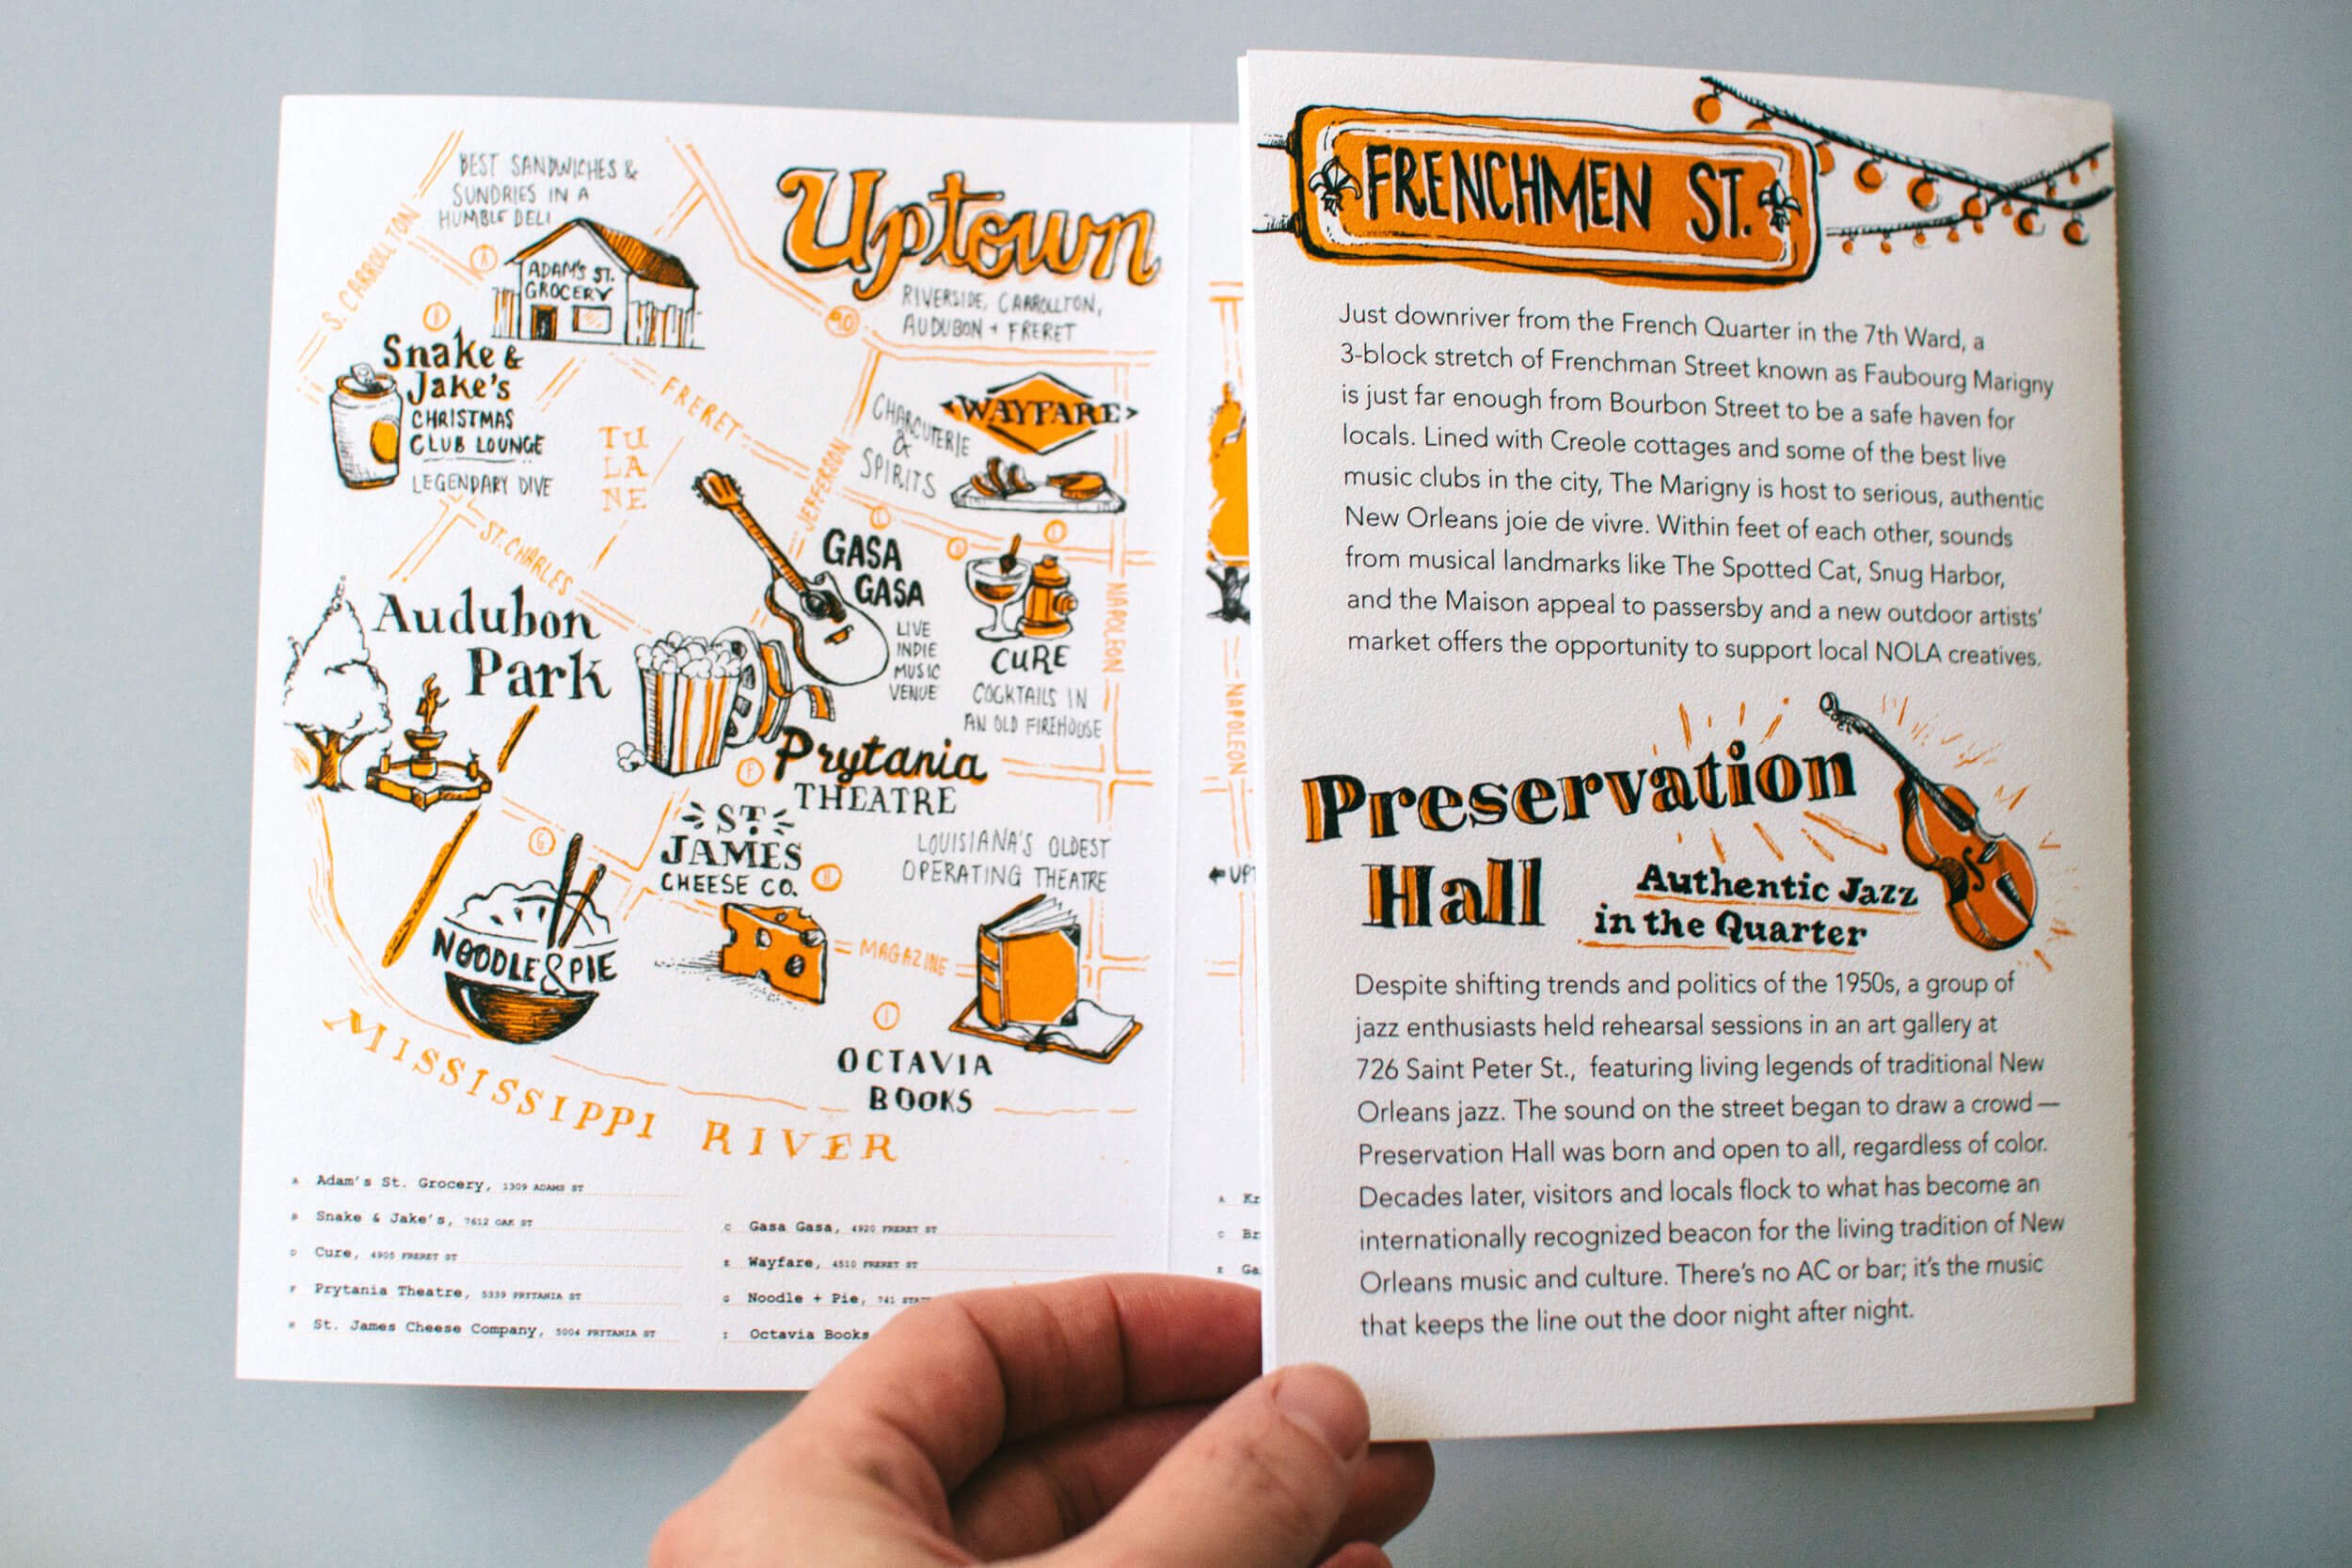 BEST SANDWICHES &
SUNDRIES IN A
HUMBLE DELI
S. CARROLLTON
A
ADAM'S ST.
GROCERY
Uptown
RIVERSIDE, CARROLLTON,
AUDUBON + FRERET
90
B
Snake &
Jake's
CHRISTMAS
CLUB LOUNGE
LEGENDARY DIVE
TU
LA
NE
FRERET
JEFFERSON
CHARCUTERIE
&
SPIRITS
WAYFARE
ST. CHARLES
GASA
GASA
LIVE
INDIE
MUSIC
VENUE
CURE
COCKTAILS IN
AN OLD FIREHOUSE
NAPOLEON
Audubon
Park
F
Prytania
THEATRE
LOUISIANA'S OLDEST
OPERATING THEATRE
ST.
JAMES
CHEESE CO.
G
NOODLE & PIE
MAGAZINE
I
OCTAVIA
BOOKS
MISSISSIPPI RIVER
A Adam's St. Grocery, 1309 ADAMS ST
B Snake & Jake's, 7612 OAK ST
D Cure, 4905 FRERET ST
F Prytania Theatre, 5339 PRYTANIA ST
H St. James Cheese Company, 5004 PRYTANIA ST
C Gasa Gasa, 4920 FRERET ST
E Wayfare, 4510 FRERET ST
G Noodle + Pie, 741
I Octavia Books
NAPOLEON
A Kr
C Br
E Ga
FRENCHMEN ST.
Just downriver from the French Quarter in the 7th Ward, a
3-block stretch of Frenchman Street known as Faubourg Marigny
is just far enough from Bourbon Street to be a safe haven for
locals. Lined with Creole cottages and some of the best live
music clubs in the city, The Marigny is host to serious, authentic
New Orleans joie de vivre. Within feet of each other, sounds
from musical landmarks like The Spotted Cat, Snug Harbor,
and the Maison appeal to passersby and a new outdoor artists'
market offers the opportunity to support local NOLA creatives.
Preservation
Hall
Authentic Jazz
in the Quarter
Despite shifting trends and politics of the 1950s, a group of
jazz enthusiasts held rehearsal sessions in an art gallery at
726 Saint Peter St., featuring living legends of traditional New
Orleans jazz. The sound on the street began to draw a crowd —
Preservation Hall was born and open to all, regardless of color.
Decades later, visitors and locals flock to what has become an
internationally recognized beacon for the living tradition of New
Orleans music and culture. There's no AC or bar; it's the music
that keeps the line out the door night after night.